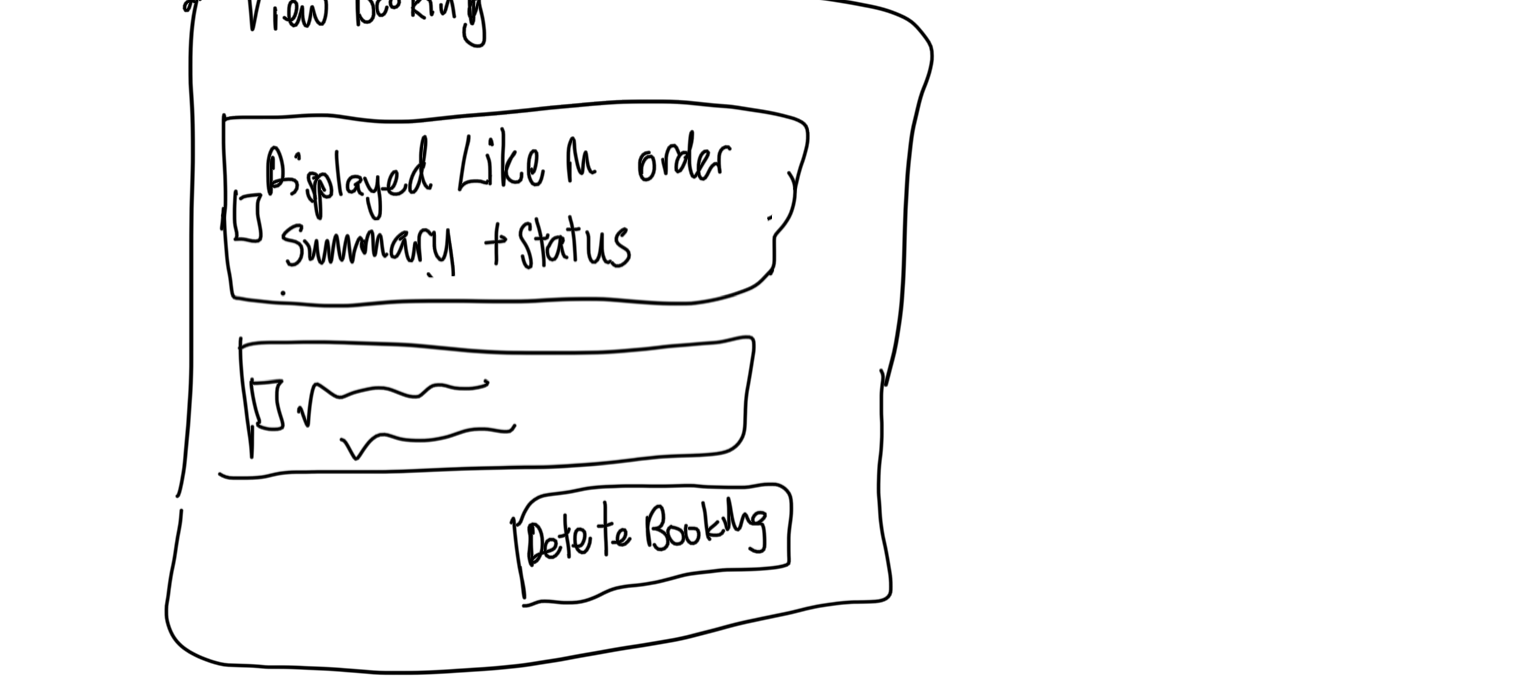 View Booking
Displayed Like in order
Summary + Status
Detete Booking